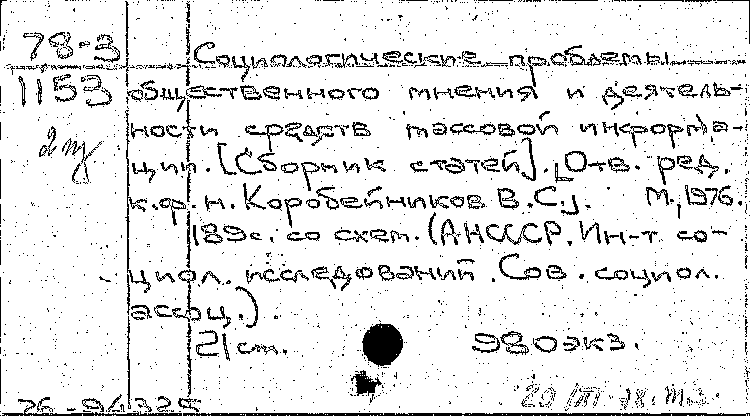 78-3
1153
Социологические проблемы
общественного мнения и деятель-
ности средств массовой информа-
ции. [Сборник статей]. [Отв. ред.
к.ф.н. Коробейников В.С.]. М., 1976.
189с. со схем. (АН СССР. Ин-т со-
циол. исследований. Сов. социол.
ассоц.).
21 см. 980 экз.
76-94325